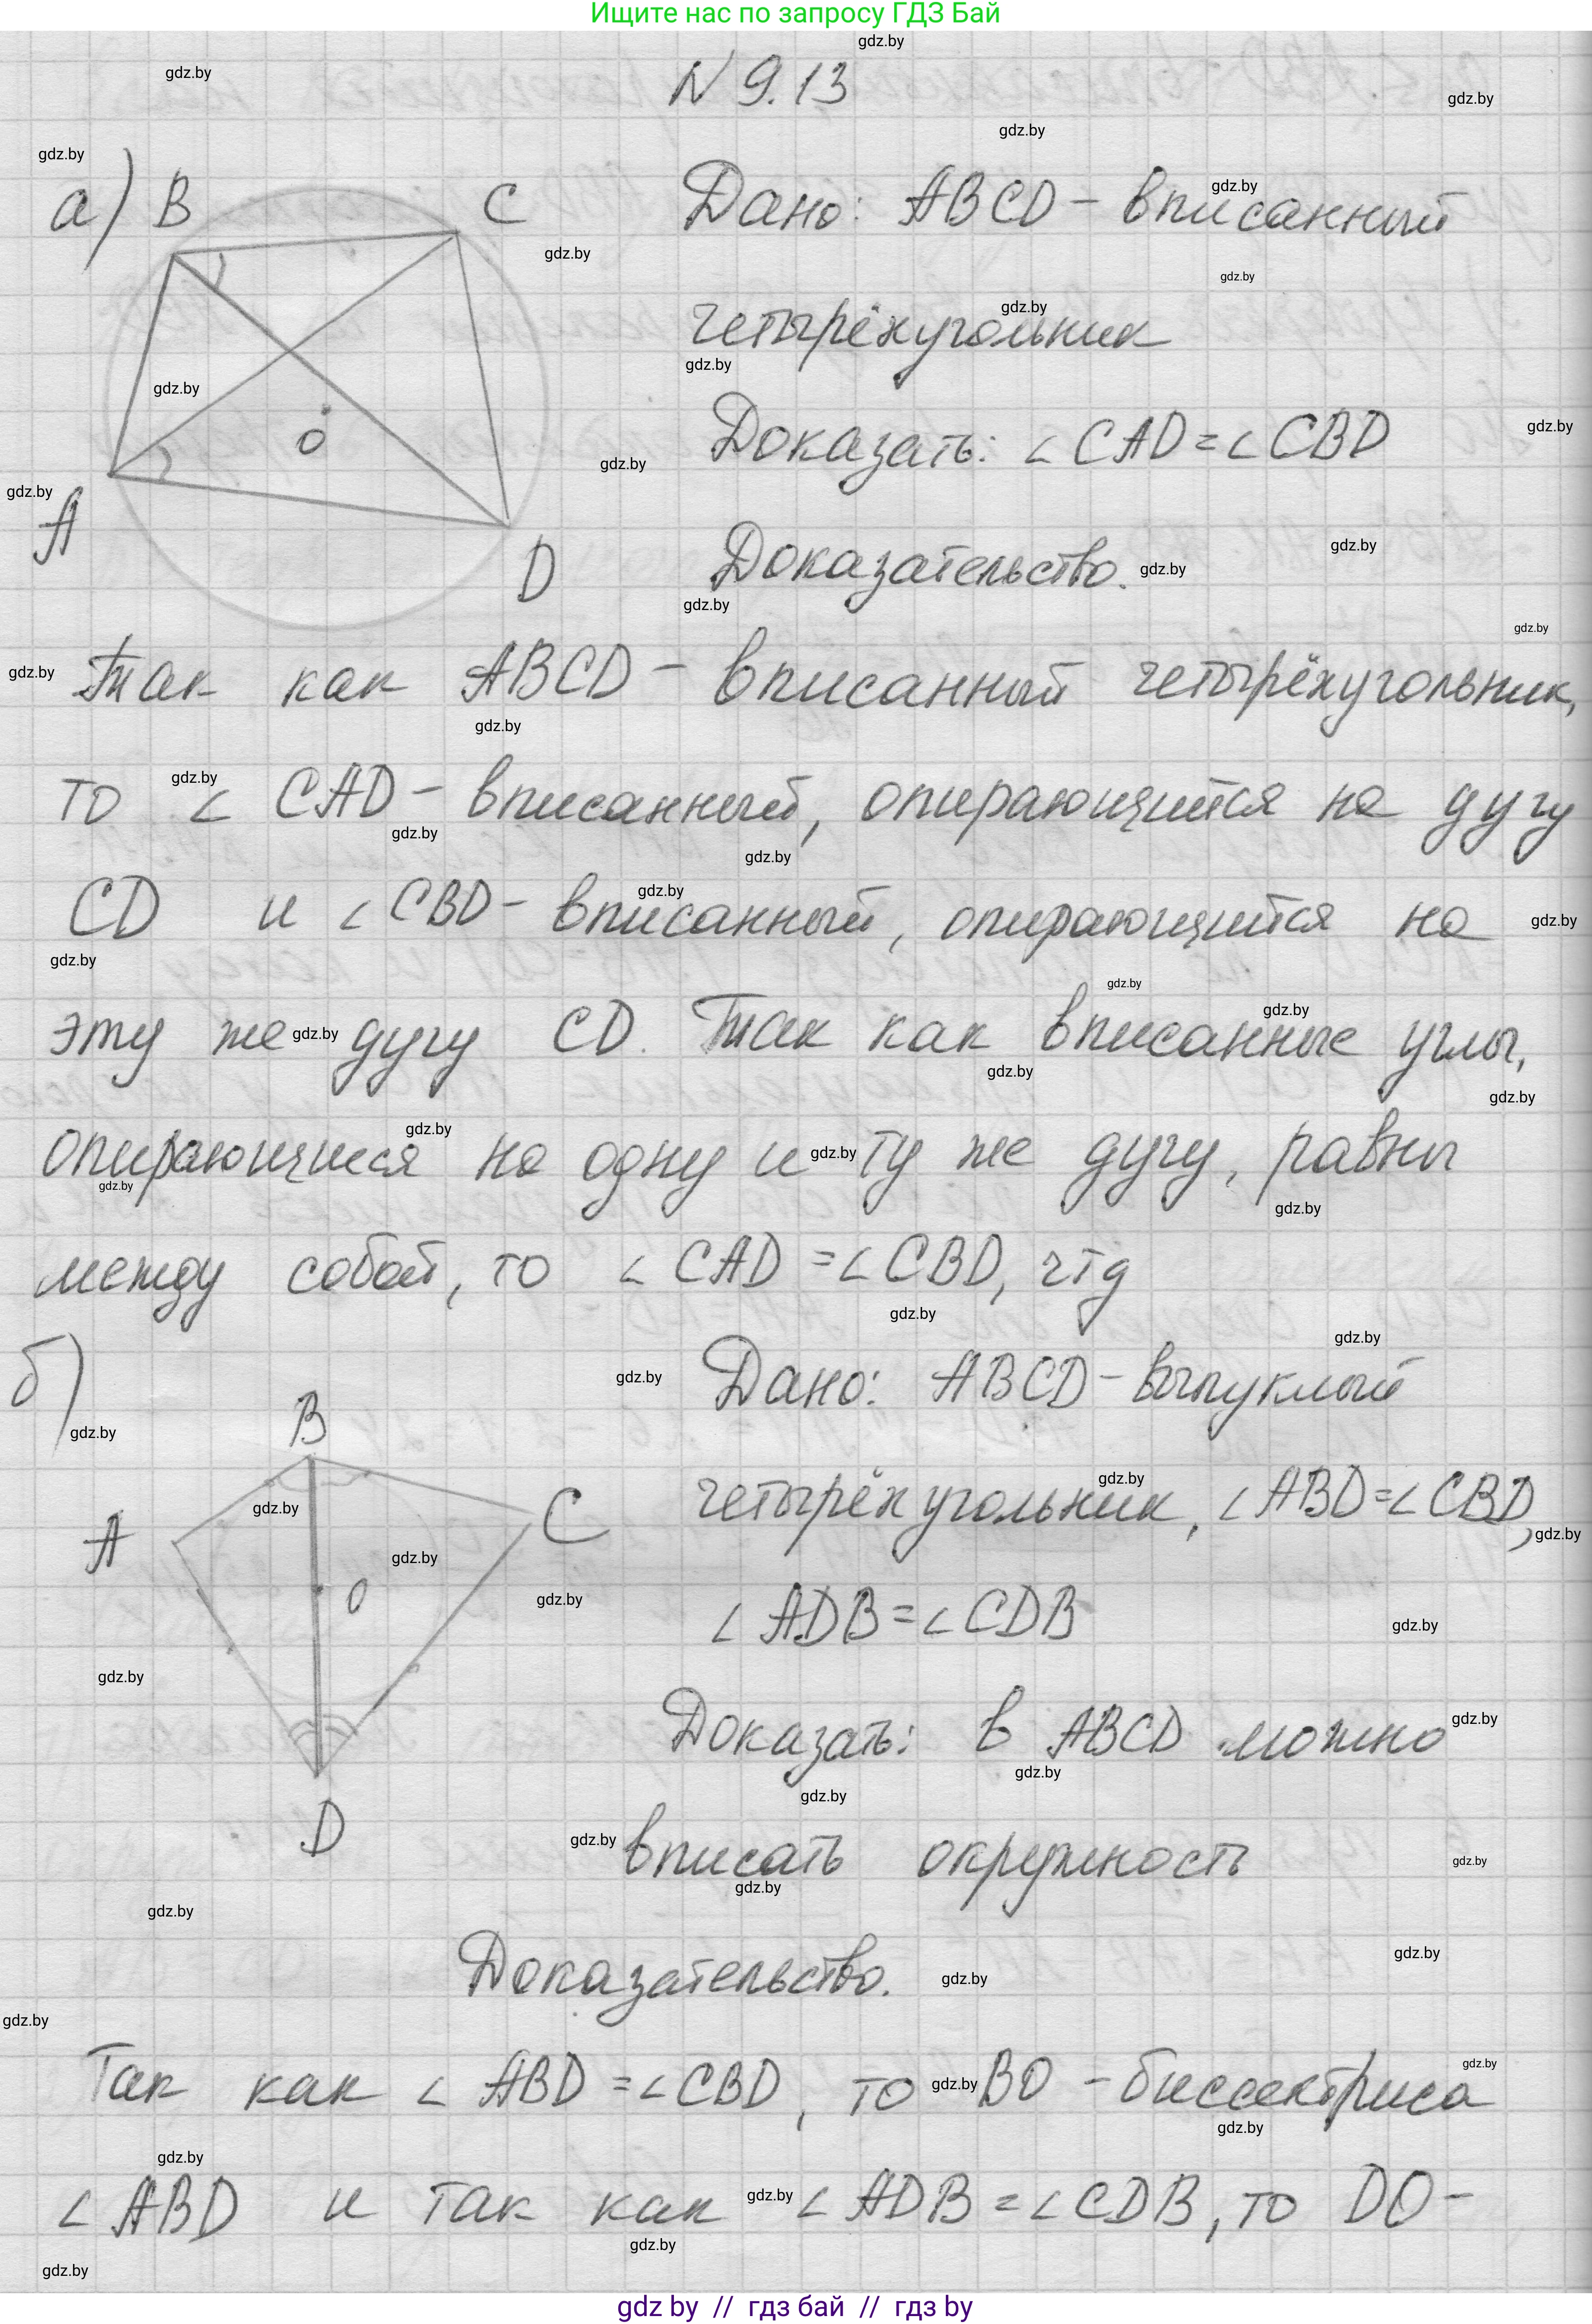 Ищите нас по запросу ГДЗ Бай
N 9.13
а) B C Дано: ABCD - вписанный
четырёхугольник
O Доказать: ∠ CAD = ∠ CBD
A D Доказательство.
Так как ABCD - вписанный четырёхугольник,
то ∠ CAD - вписанный, опирающийся на дугу
CD и ∠ CBD - вписанный, опирающийся на
эту же дугу CD. Так как вписанные углы,
опирающиеся на одну и ту же дугу, равны
между собой, то ∠ CAD = ∠ CBD, чтд
б) B Дано: ABCD - выпуклый
A C четырёхугольник, ∠ ABD = ∠ CBD,
O ∠ ADB = ∠ CDB
Доказать: в ABCD можно
D вписать окружность
Доказательство.
Так как ∠ ABD = ∠ CBD, то BO - биссектриса
∠ ABD и так как ∠ ADB = ∠ CDB, то DO -
gdz by // гдз бай // гдз by